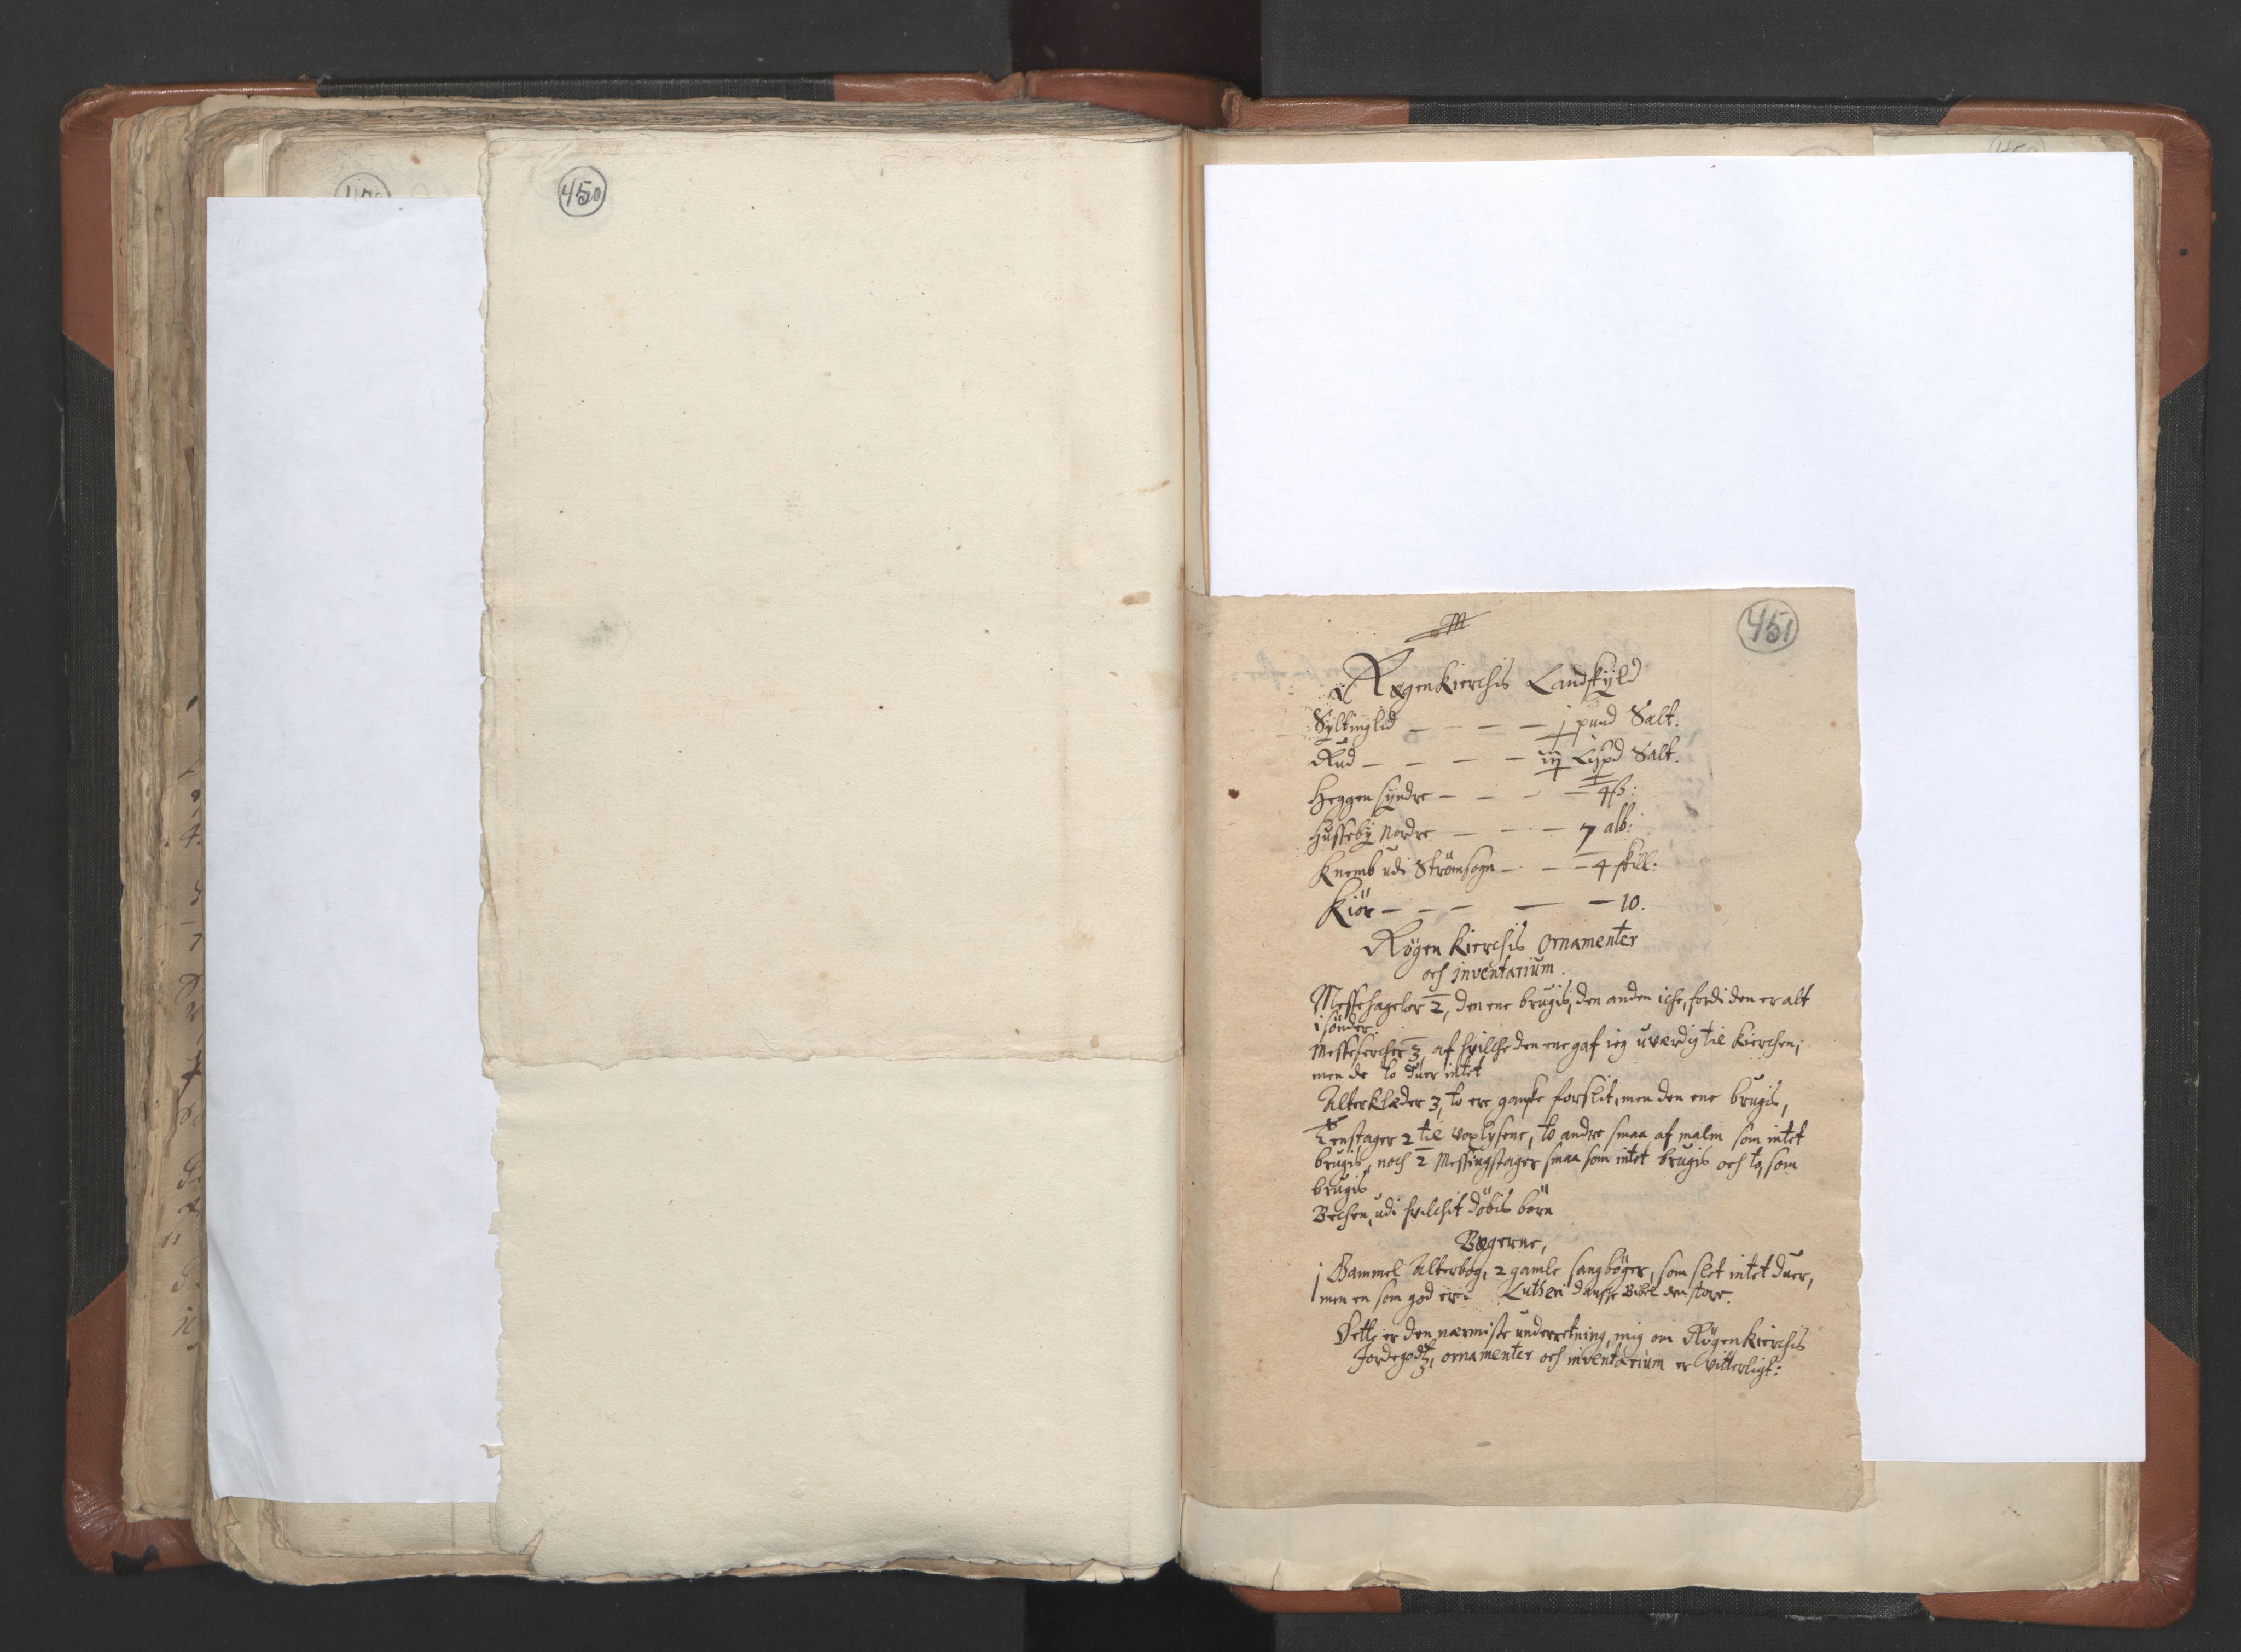 450
451
Røgen Kierchis Landskÿld
Sÿltinglid — — — — j pund Salt.
Rud — — — — iij Lispd Salt.
Heggen syndre — — — 4 ß:
Husseby Nordre — — — 7 alb:
Knemb udi Strömsogn — — — 4 skill:
Kiör — — — — — 10.
Rögen Kierchis Ornamenter
och inventarium.
Messehageler 2, den ene brugis, den anden iche, fordi den er alt
i sönder.
Messesercher 3, af huilche den ene gaf ieg uværdig til Kierchen,
men de to duer intet
Alterklæder 3, to ere ganske forslit, men den ene brugis,
stager 2 til voxlysene, to andre smaa af malm som intet
brugis, noch 2 Messingstager smaa som intet brugis och to, som
brugis
Bechen, udi huilchit döbis börn
Bøgerne,
j Gammel Alterbog, 2 gamle sangböger, som slet intet duer,
men en som god er: Lutheri danske Bibel den store.
Dette er den nærmiste underretning, mig om Rögen Kierchis
Jordegodtz, ornamenter och inventarium er vitterligt: